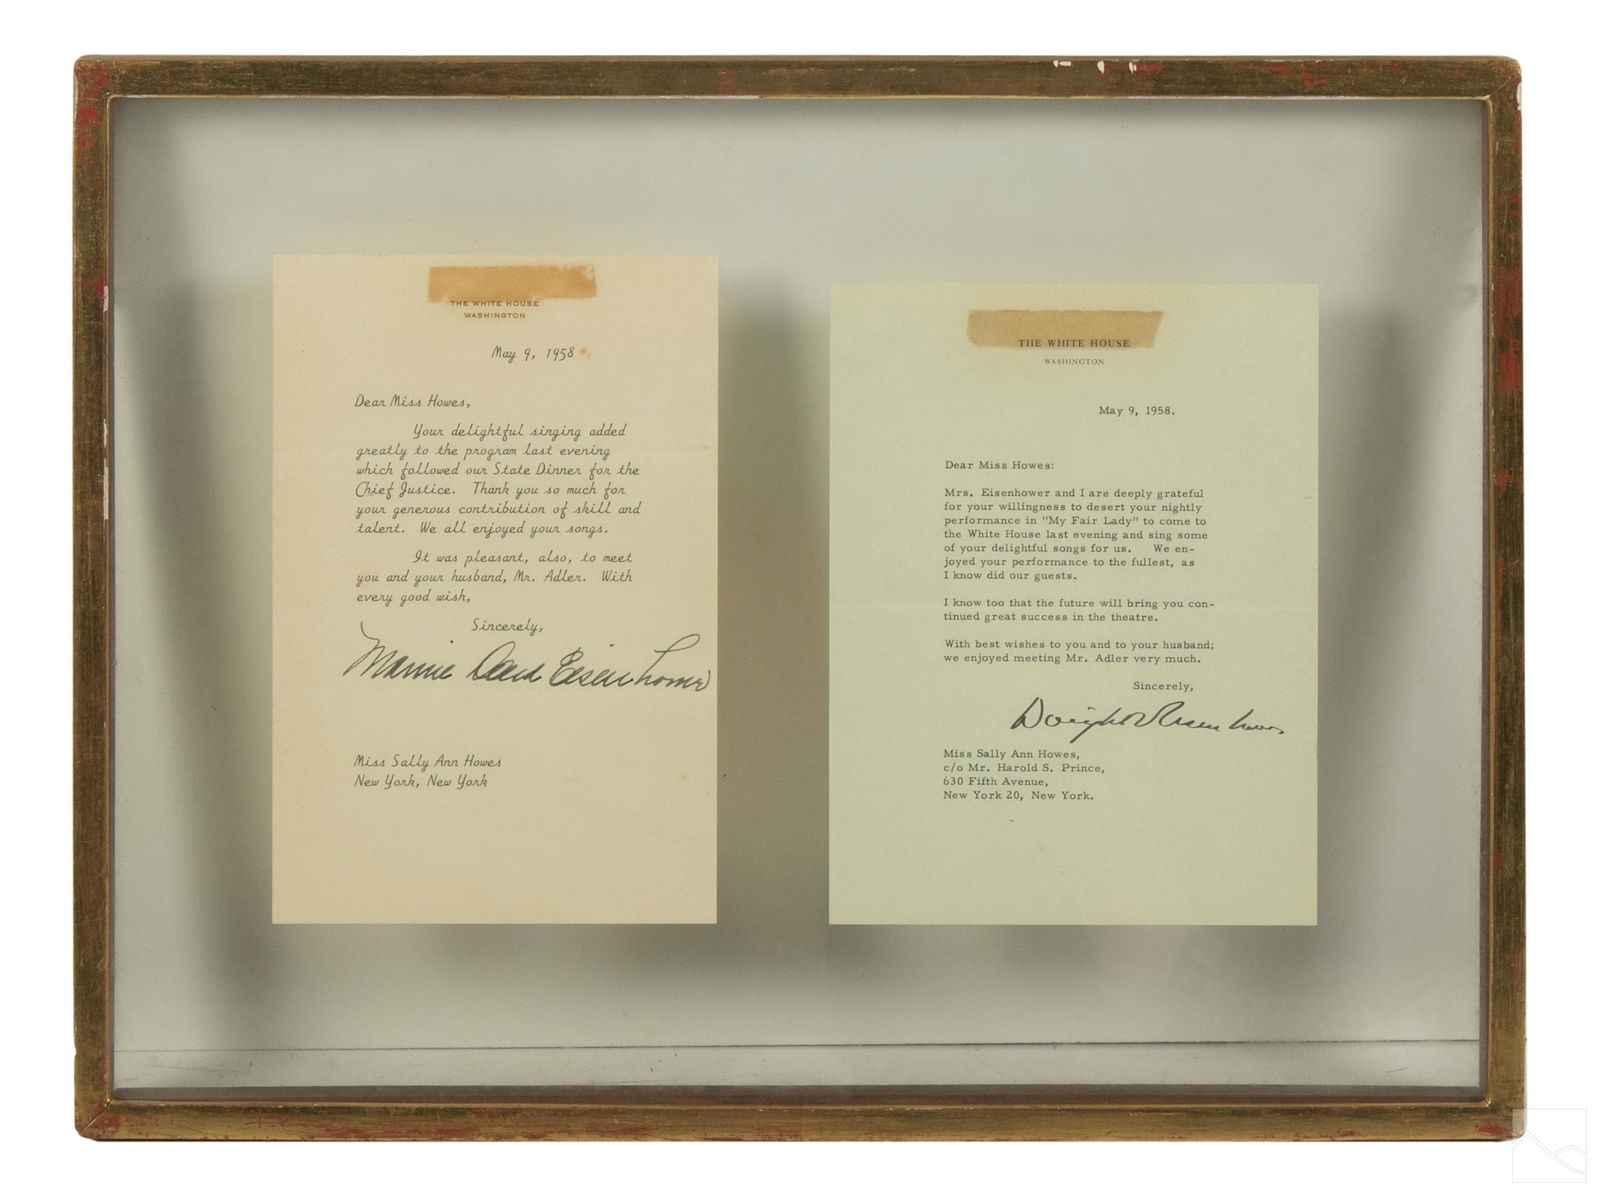 THE WHITE HOUSE
WASHINGTON
May 9, 1958
Dear Miss Howes,
Your delightful singing added
greatly to the program last evening
which followed our State Dinner for the
Chief Justice. Thank you so much for
your generous contribution of skill and
talent. We all enjoyed your songs.
It was pleasant, also, to meet
you and your husband, Mr. Adler. With
every good wish,
Sincerely,
Mamie Doud Eisenhower
Miss Sally Ann Howes
New York, New York
THE WHITE HOUSE
WASHINGTON
May 9, 1958.
Dear Miss Howes:
Mrs. Eisenhower and I are deeply grateful
for your willingness to desert your nightly
performance in "My Fair Lady" to come to
the White House last evening and sing some
of your delightful songs for us. We en-
joyed your performance to the fullest, as
I know did our guests.
I know too that the future will bring you con-
tinued great success in the theatre.
With best wishes to you and to your husband;
we enjoyed meeting Mr. Adler very much.
Sincerely,
Dwight D Eisenhower
Miss Sally Ann Howes,
c/o Mr. Harold S. Prince,
630 Fifth Avenue,
New York 20, New York.